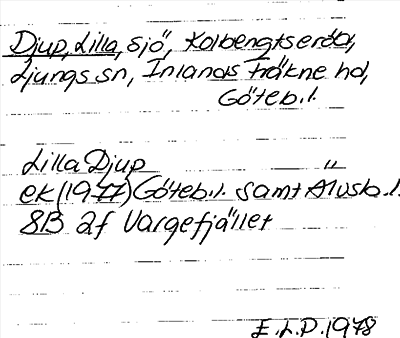 Djup, Lilla, sjö, Kolbengtseröd,
Ljungs sn, Inlands Fräkne hd,
Göteb.l.
Lilla Djup "
ek (1977) Göteb.l. samt Älvsb.l.
8B 2f Vargefjället
E.L.P. 1978